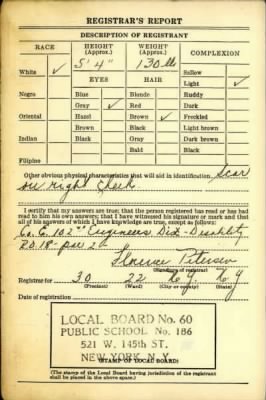 REGISTRAR'S REPORT
DESCRIPTION OF REGISTRANT
RACE HEIGHT (Approx.) WEIGHT (Approx.) COMPLEXION
5' 4" 130 lbs
White ✓ Sallow
EYES HAIR Light ✓
Negro Blue Blonde Ruddy
Gray ✓ Red Dark
Oriental Hazel Brown ✓ Freckled
Brown Black Light brown
Indian Black Gray Dark brown
Bald Black
Filipino
Other obvious physical characteristics that will aid in identification Scar
on right Cheek
I certify that my answers are true; that the person registered has read or has had
read to him his own answers; that I have witnessed his signature or mark and that
all of his answers of which I have knowledge are true, except as follows:
Co. E. 102nd Engineers Dis- Disability
R.O. 18- par 2
Florence Petersen
(Signature of registrar)
Registrar for 30 22 N.Y. N.Y.
(Precinct) (Ward) (City or county) (State)
Date of registration
LOCAL BOARD No. 60
PUBLIC SCHOOL No. 186
521 W. 145th ST.
NEW YORK, N. Y.
(STAMP OF LOCAL BOARD)
(The stamp of the Local Board having jurisdiction of the registrant
shall be placed in the above space.)